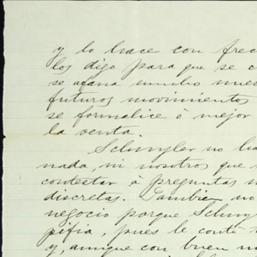 y lo hace con frec
los digo para que se c
se afana mucho nues
futuros movimientos
se formalice ó mejor
la venta.
Schuyler no ha
nada, ni nosotros que
contestar á preguntas
discretas. Tambien no
negocio porque Schuy
pifia, pues le conté
y, aunque con buen m